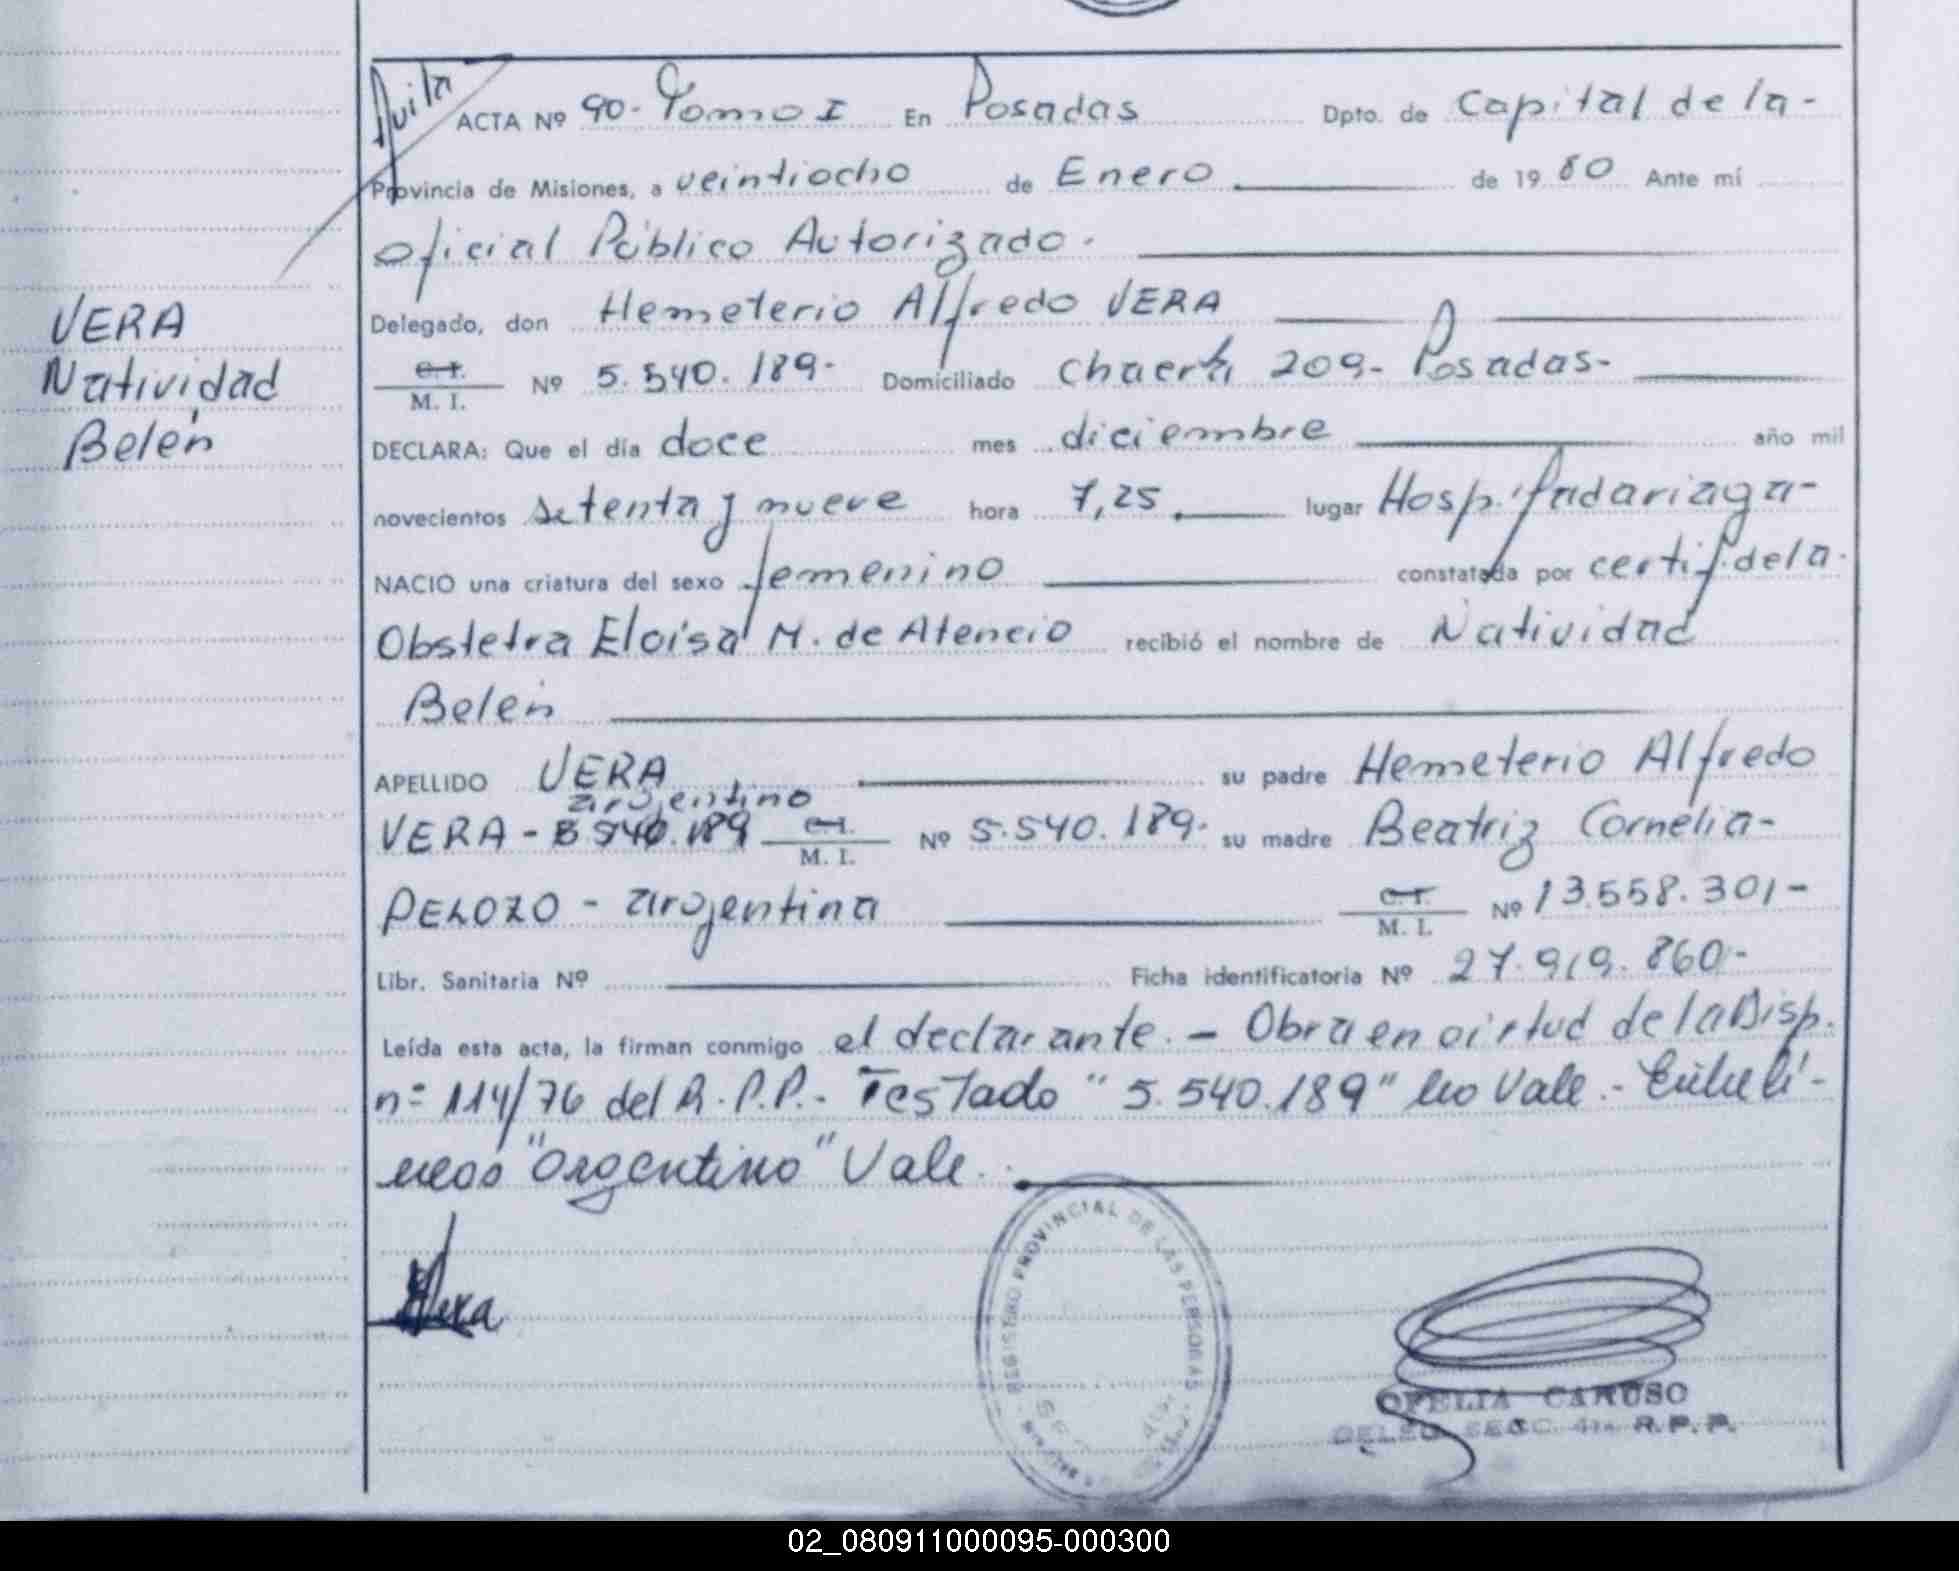 ACTA Nº 90- Tomo I En Posadas Dpto. de Capital de la-
Provincia de Misiones, a veintiocho de Enero de 1980 Ante mí
oficial Público Autorizado.
VERA
Natividad
Belén
Delegado, don Hemeterio Alfredo VERA
C. I.
M. I. Nº 5.540.189- Domiciliado chacra 209- Posadas-
DECLARA: Que el día doce mes diciembre año mil
novecientos setenta y nueve hora 7,25 lugar Hosp. Madariaga-
NACIO una criatura del sexo femenino constatada por certif. de la
Obstetra Eloisa M. de Atencio recibió el nombre de Natividad
Belén
APELLIDO VERA su padre Hemeterio Alfredo
argentino
VERA - 5.540.189 C. I. Nº 5.540.189- su madre Beatriz Cornelia-
M. I.
PELOZO - argentina C. I. Nº 13.558.301-
M. I.
Libr. Sanitaria Nº Ficha identificatoria Nº 27.919.860-
Leída esta acta, la firman conmigo el declarante. - Obra en virtud de la Disp.
nº 114/76 del R.P.P.- Testado "5.540.189" no Vale.- Entreli-
neas "argentino" Vale.
Vera
REGISTRO PROVINCIAL DE LAS PERSONAS
OFELIA CARUSO
DELEG. SECC. 4ta R.P.P.
02_080911000095-000300